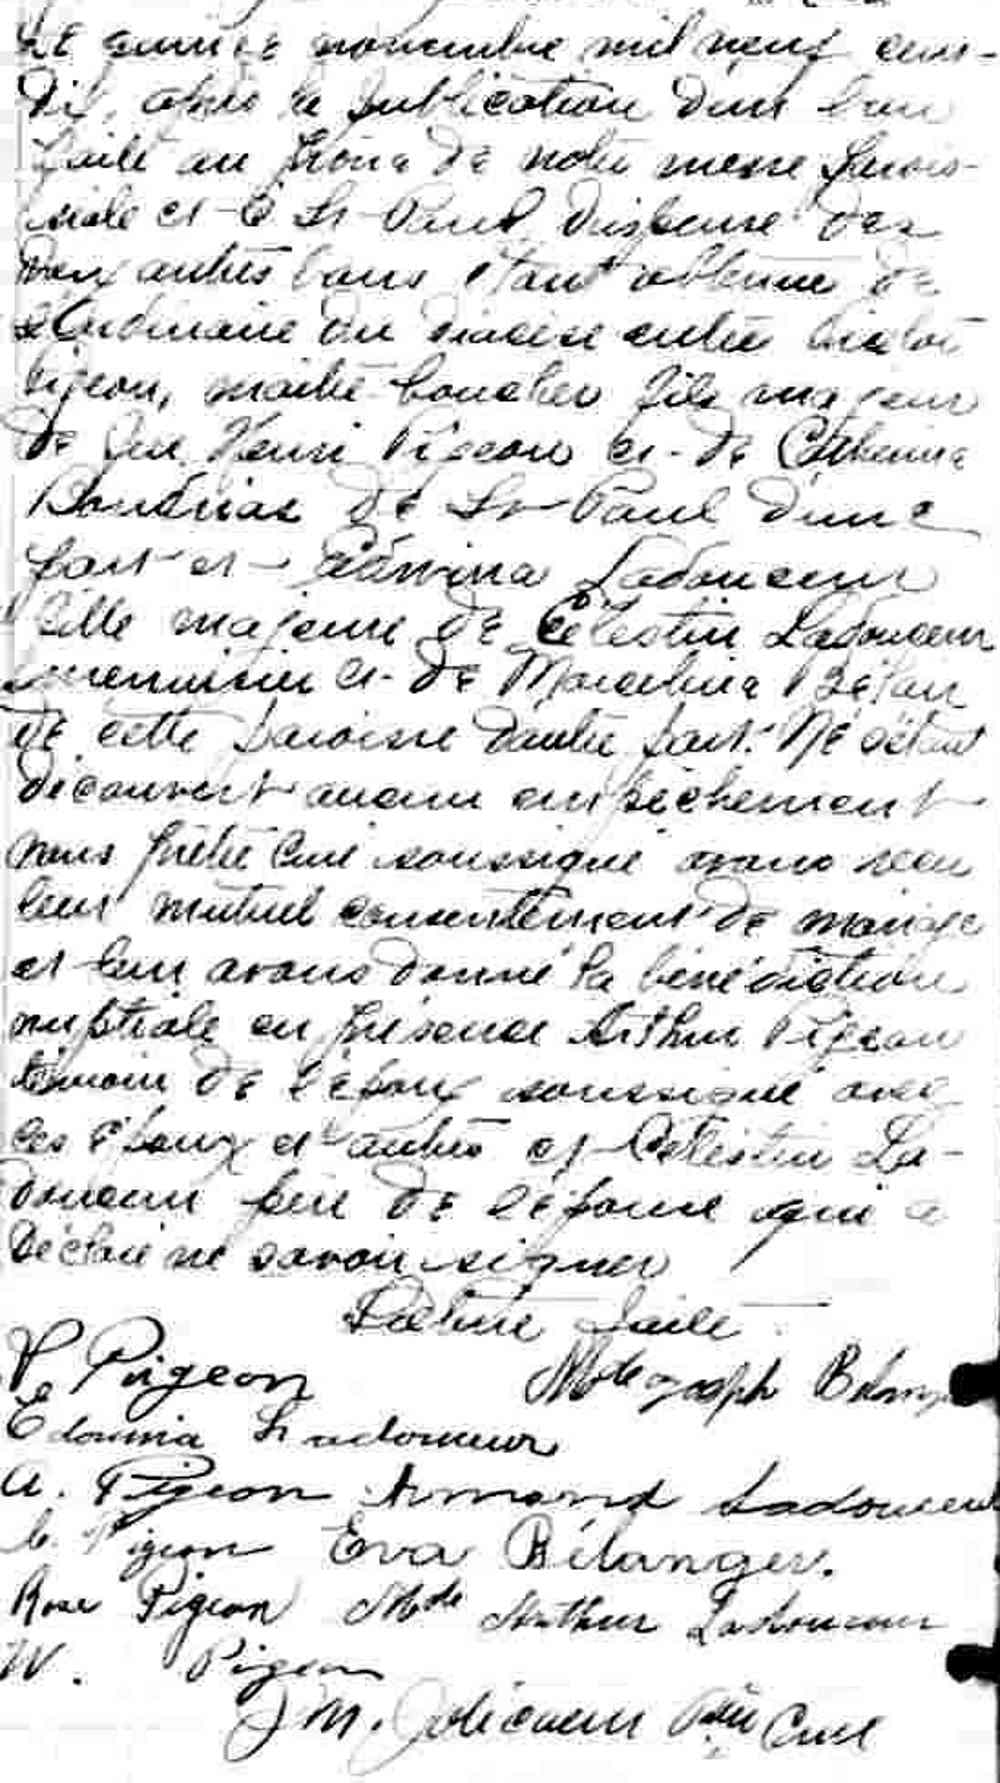 Le quinze novembre mil neuf cent
dix, après la publication d'un ban
faite au prône de notre messe parois-
siale et à St Paul dispense des
deux autres bans étant obtenue de
l'Ordinaire du diocèse entre
Pigeon, maître boucher fils majeur
de feu Henri Pigeon et de Catherine
Boudrias de St Paul d'une
part et Edwina Ladouceur
fille majeure de Célestin Ladouceur
menuisier et de Marcelina Bélair
de cette paroisse d'autre part. Ne s'étant
découvert aucun empêchement
nous prêtre curé soussigné avons reçu
leur mutuel consentement de mariage
et leur avons donné la bénédiction
nuptiale en présence Arthur Pigeon
témoin de l'époux soussigné avec
les époux et autres et Célestin La-
douceur père de l'épouse qui a
déclaré ne savoir signer
Lecture faite
V Pigeon Mde Joseph
Edouina Ladouceur
A. Pigeon Armand Ladouceur
Pigeon Eva Bélanger.
Rose Pigeon Mde Arthur Ladouceur
W. Pigeon
J M. Jolicoeur Ptre Curé